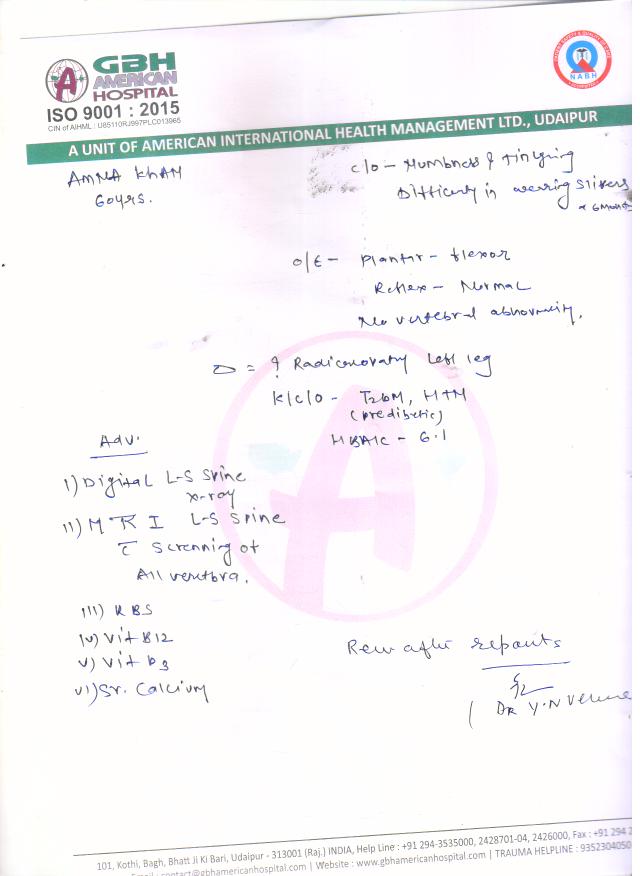 GBH
AMERICAN
HOSPITAL
ISO 9001 : 2015
CIN of AIHML : U85110RJ997PLC013965
NABH
A UNIT OF AMERICAN INTERNATIONAL HEALTH MANAGEMENT LTD., UDAIPUR
AMNA KHAN
60yrs.
c/o - Numbness & tingling
Difficulty in wearing Slivers
x 6 Month
O/E - Plantar - flexor
Reflex - Normal
No vertebral abnormality.
D = ? Radiculopathy Left leg
K/C/O - T2DM, HTN
(predibetic)
HBA1C - 6.1
Adv.
I) Digital L-S Spine
x-ray
II) MRI L-S Spine
c̄ Screnning of
All vertbra.
III) RBS
IV) Vit B12
V) Vit D3
VI) Sr. Calcium
Rew after repants
(DR Y.N Verma
101, Kothi, Bagh, Bhatt Ji Ki Bari, Udaipur - 313001 (Raj.) INDIA, Help Line : +91 294-3535000, 2428701-04, 2426000, Fax : +91 294 2
Email : contact@gbhamericanhospital.com | Website : www.gbhamericanhospital.com | TRAUMA HELPLINE : 9352304050